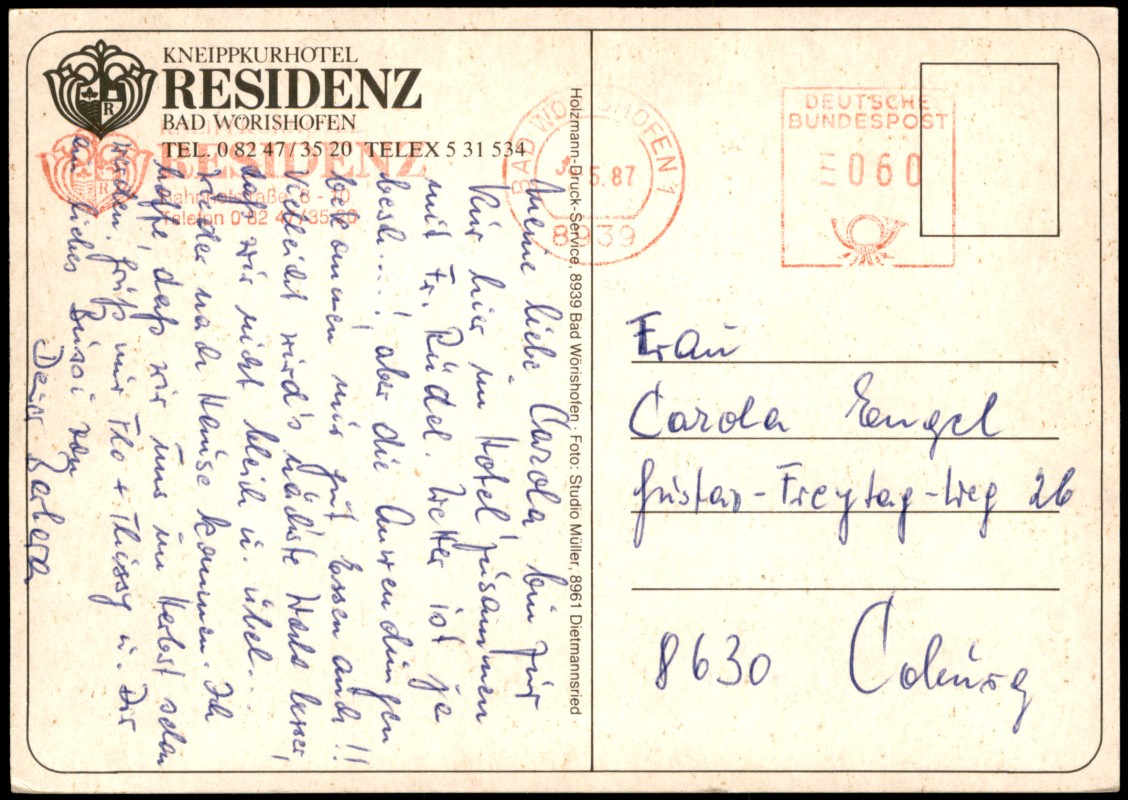 KNEIPPKURHOTEL
RESIDENZ
BAD WÖRISHOFEN
TEL. 0 82 47 / 35 20 TELEX 5 31 534
RESIDENZ
Bahnhofstraße 8 - 10
Telefon 0 82 47/35 20
Meine liebe Carola, bin zur
Kur hier im Hotel zusammen
mit Fr. Rüdel. Wetter ist ja
besch...., aber die Anwendungen
bekommen mir gut. Essen auch!!
Vielleicht wird's nächste Woche besser,
daß wir nicht bleich u. übel...
wieder nach Hause kommen. Ich
hoffe, daß wir uns im Herbst sehen
werden. Grüß mir Tho + Thiessy u. Dir
ein liches Bussi von
Deiner
Holzmann-Druck-Service, 8939 Bad Wörishofen · Foto: Studio Müller, 8961 Dietmannsried
BAD WÖRISHOFEN 1
5.87
8939
DEUTSCHE
BUNDESPOST
060
Frau
Carola Engel
Gustav-Freytag-Weg 26
8630 Coburg